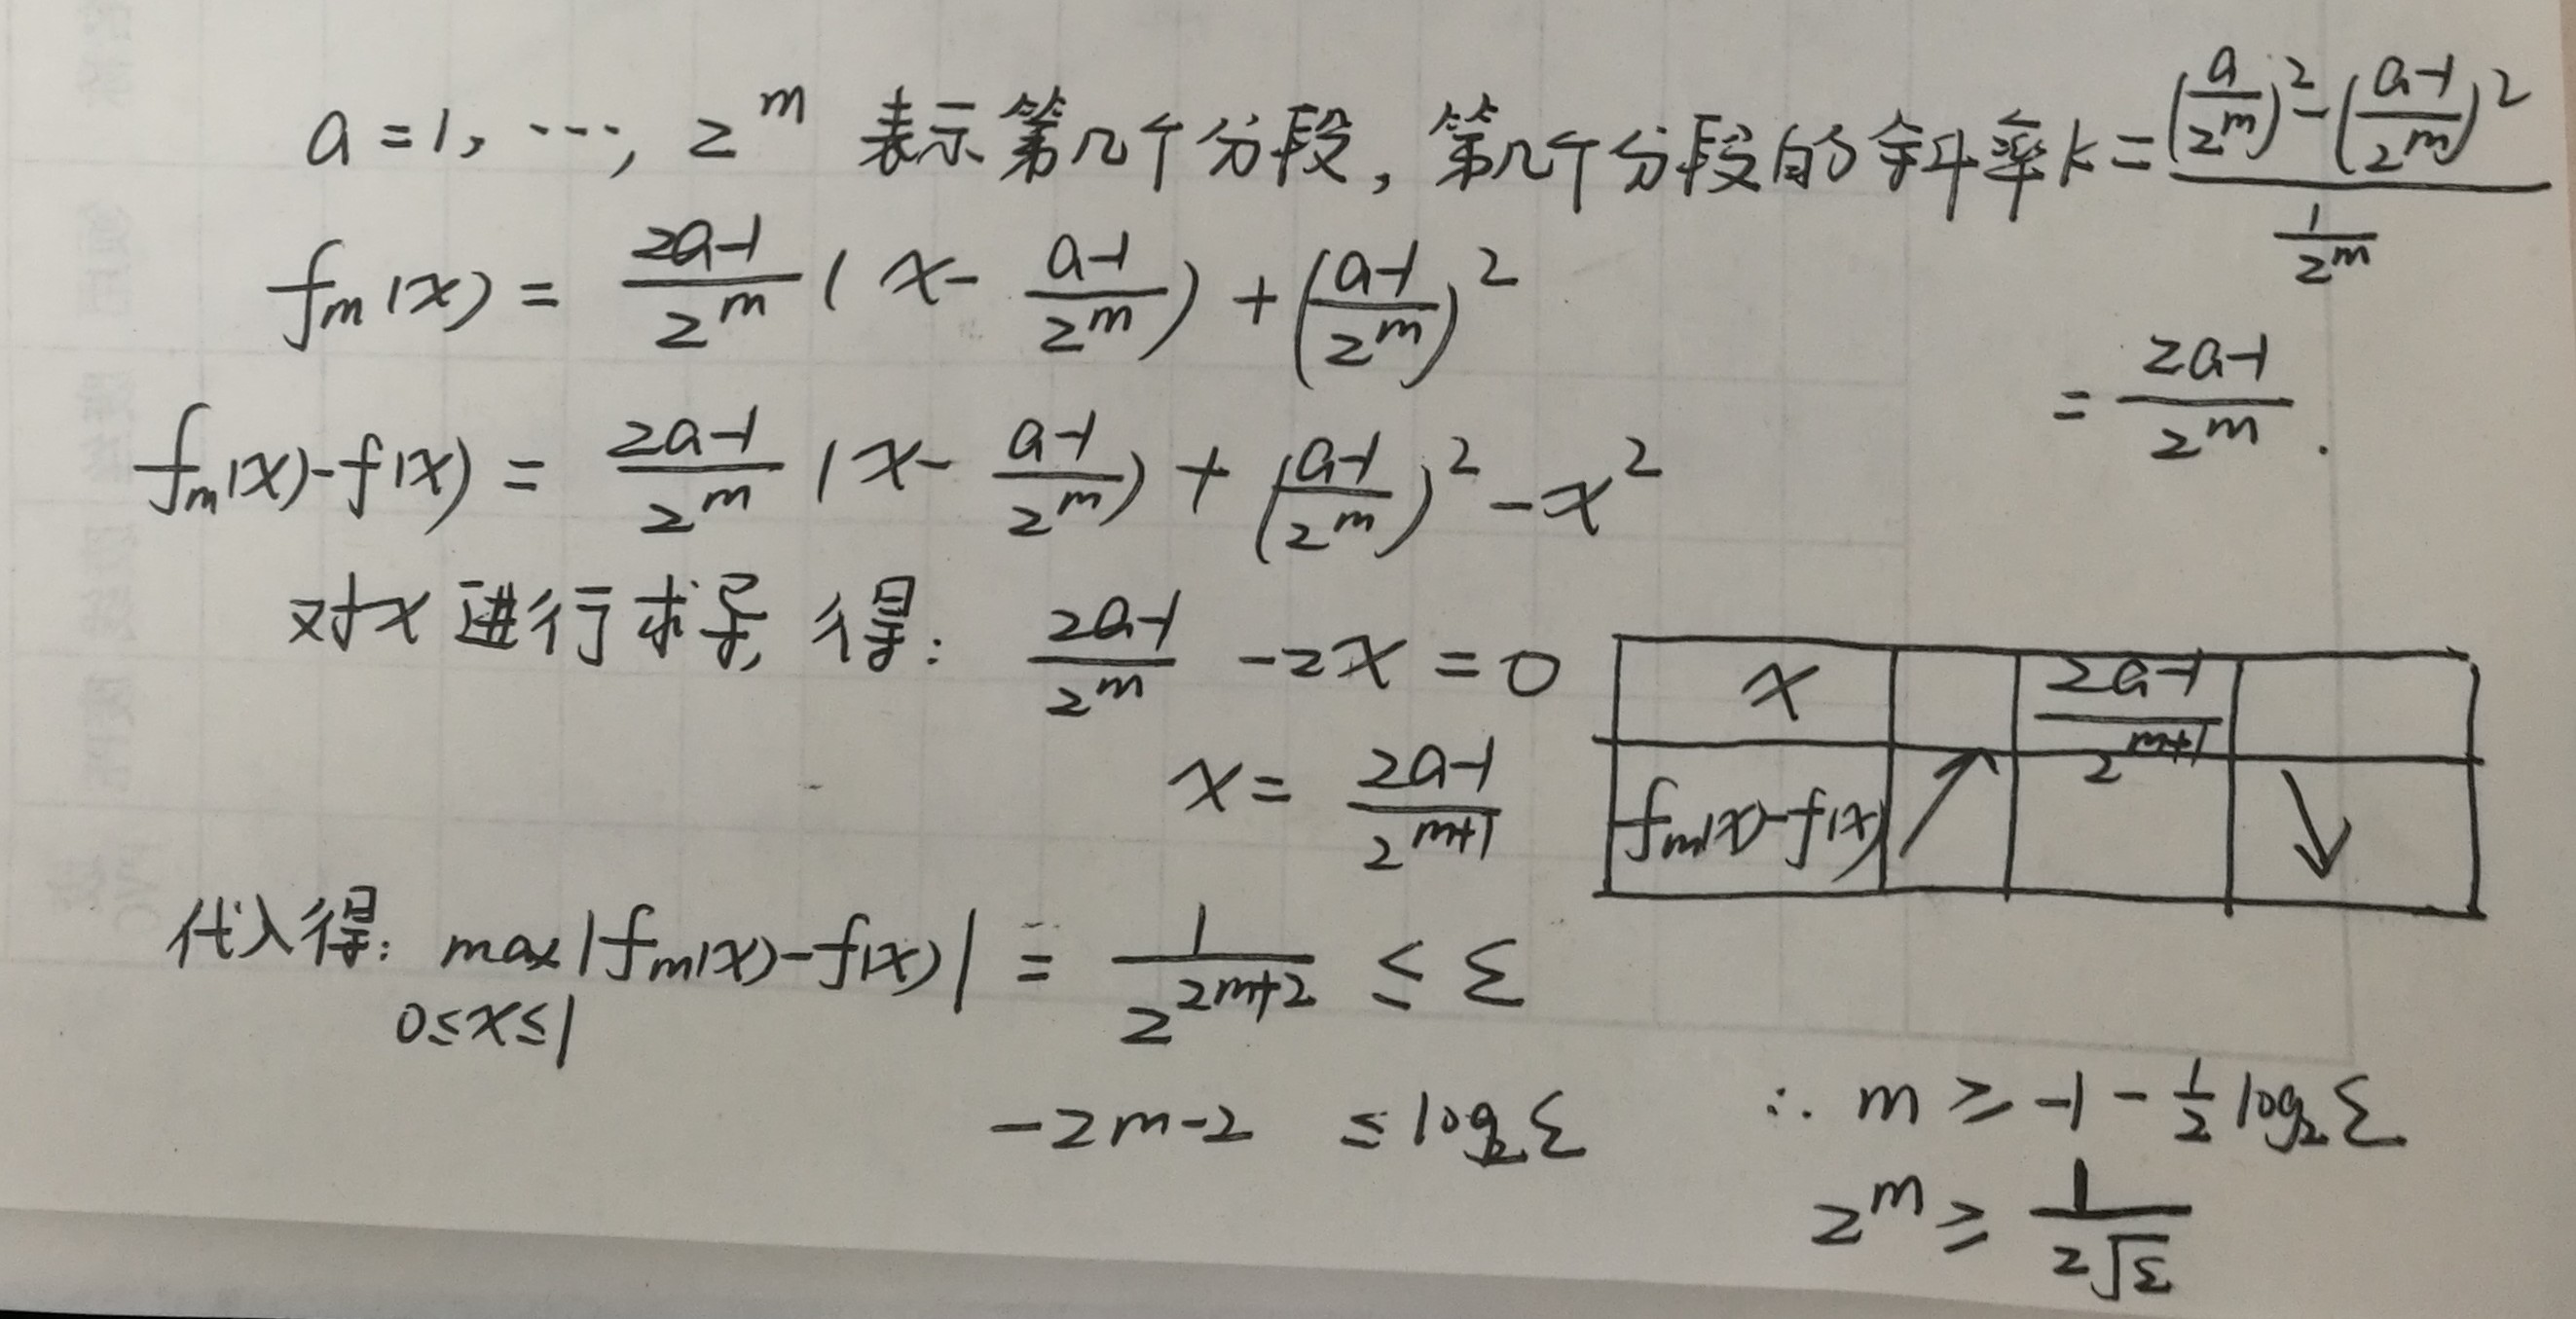 a=1, ⋯, 2^m 表示第几个分段, 第几个分段的斜率k= ((a/2^m)^2-(a-1/2^m)^2)/(1/2^m)
f_m(x) = (2a-1)/2^m (x- (a-1)/2^m) + ((a-1)/2^m)^2
= (2a-1)/2^m .
f_m(x)-f(x) = (2a-1)/2^m (x- (a-1)/2^m) + ((a-1)/2^m)^2 -x^2
对x进行求导, 得: (2a-1)/2^m -2x = 0
x = (2a-1)/2^(m+1)
x (2a-1)/2^(m+1)
f_m(x)-f(x) ↗ ↘
代入得: max |f_m(x)-f(x)| = 1/2^(2m+2) ≤ ε
0≤x≤1
-2m-2 ≤ log₂ε ∴ m ≥ -1 - 1/2 log₂ε
2^m ≥ 1/(2√ε)